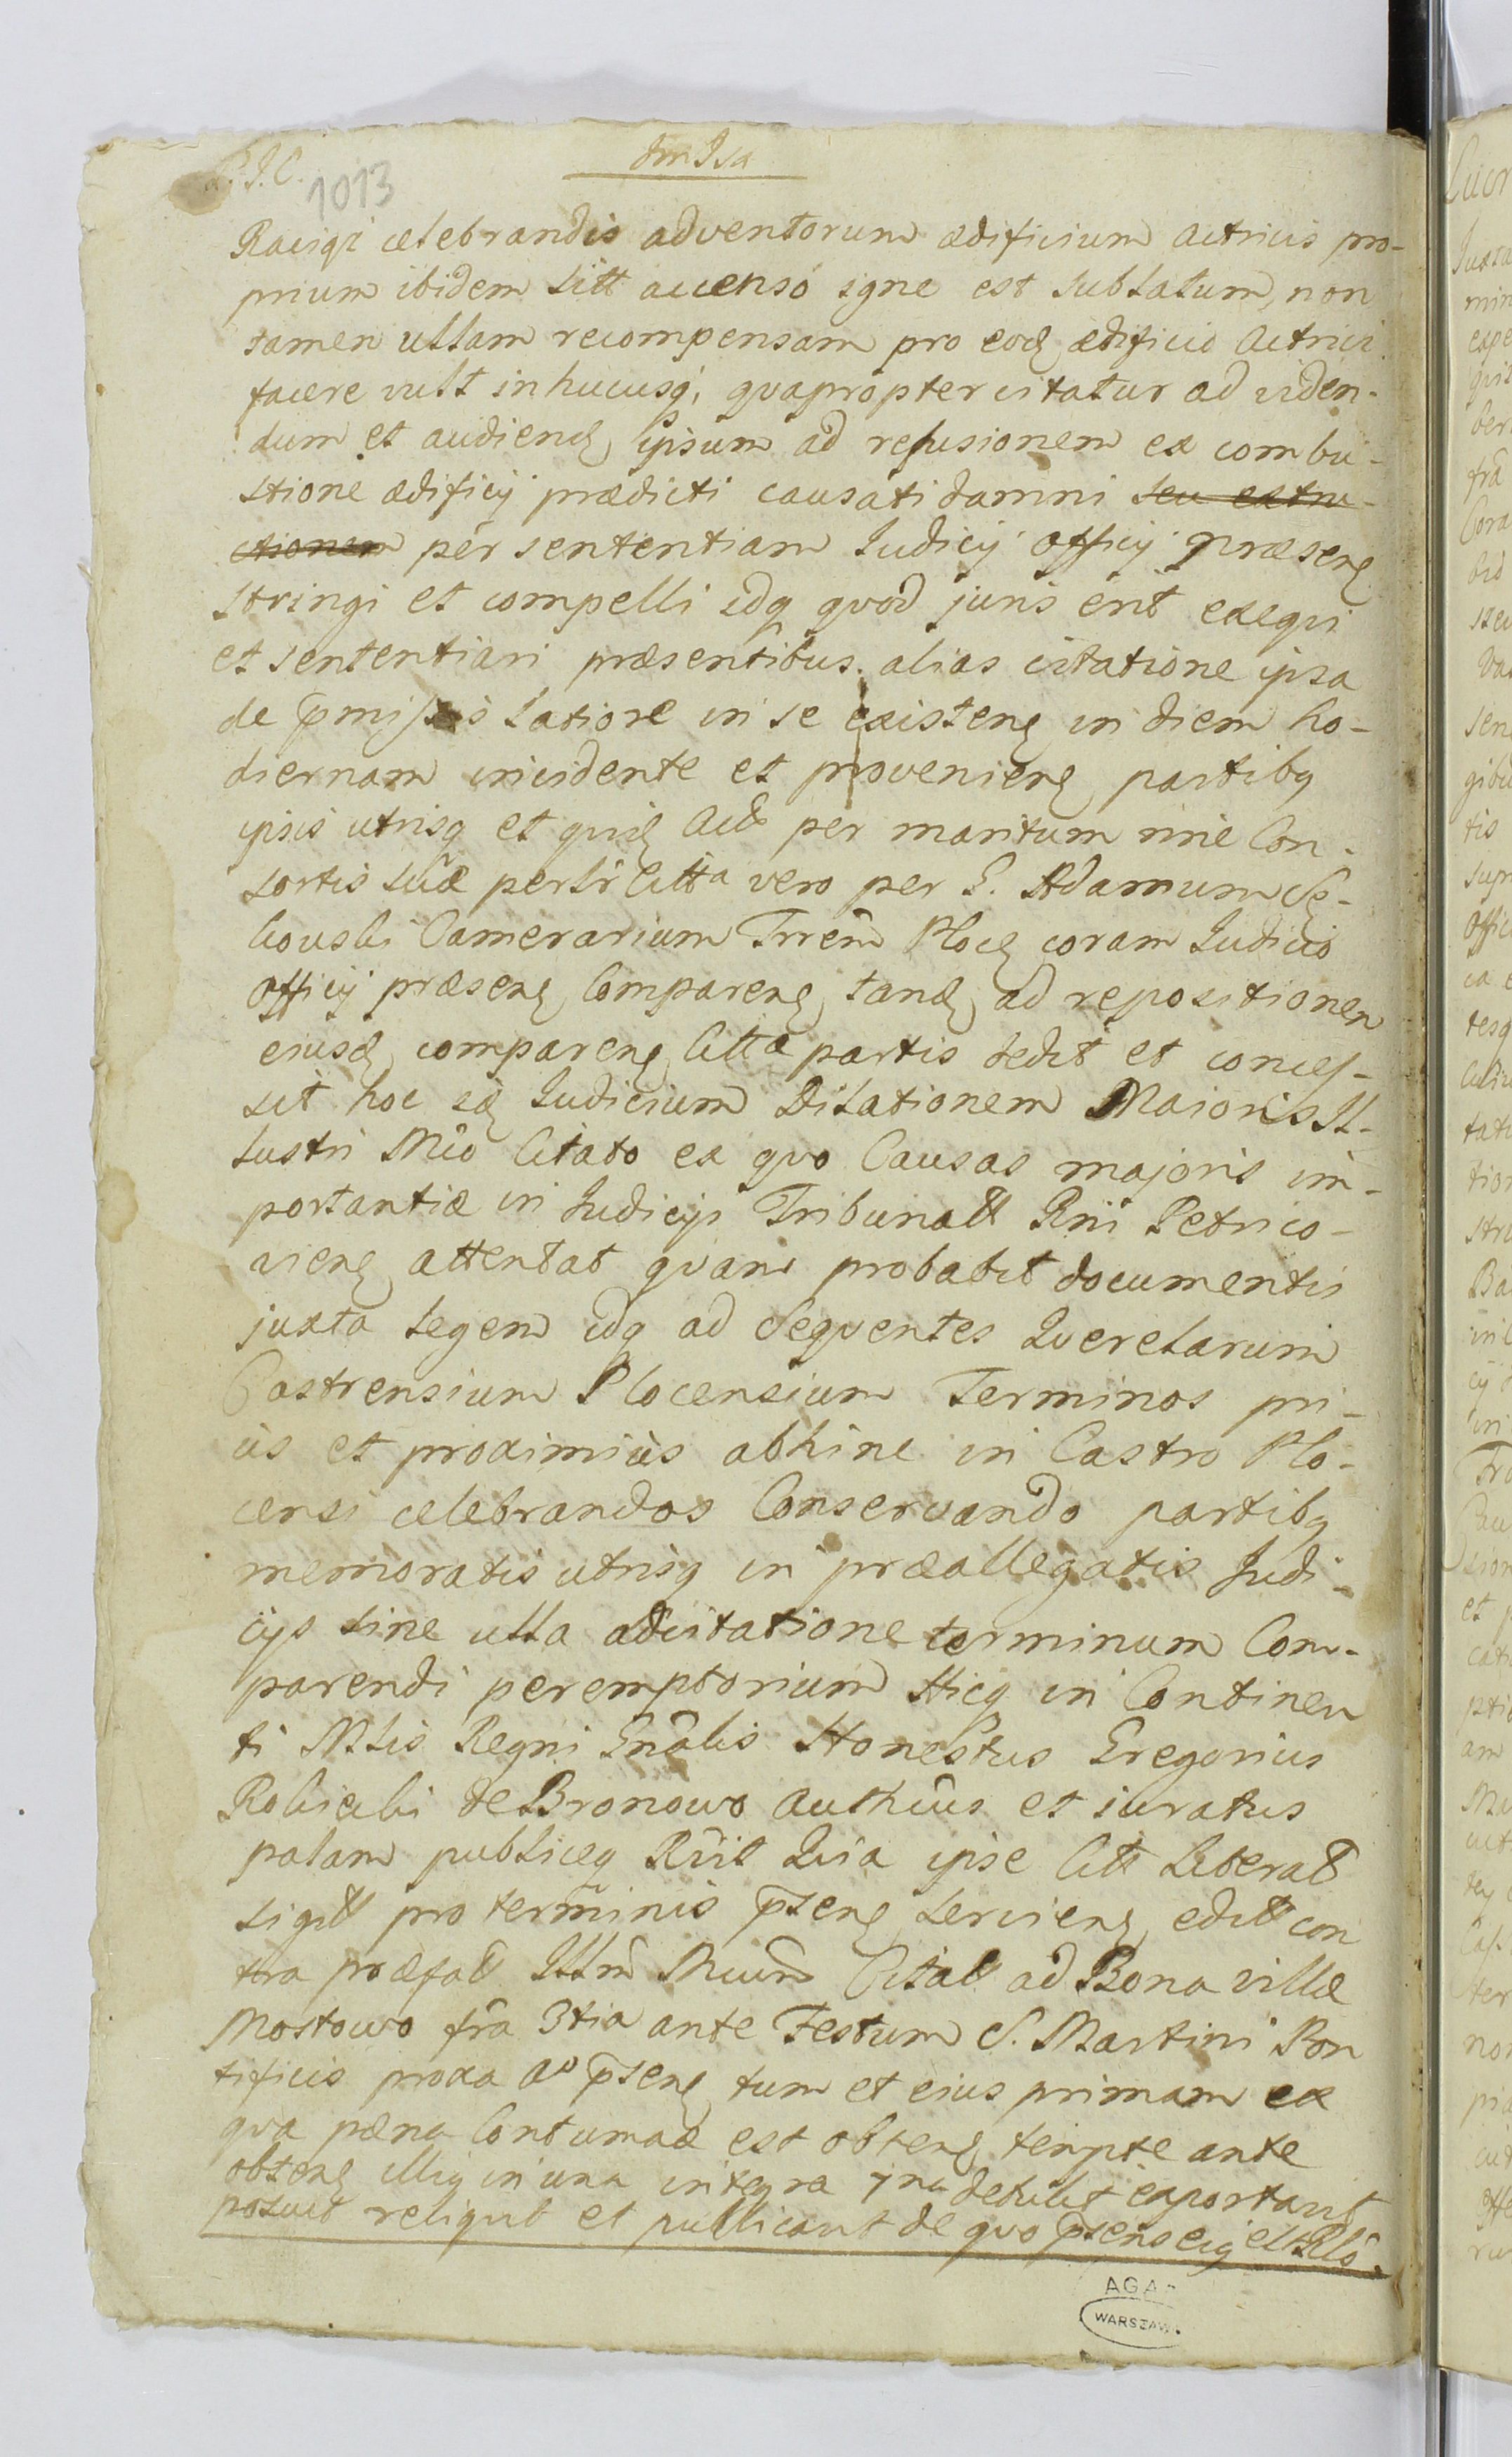 P.J.C. 1013
Racięż celebrandis adventorum ædificium actricis pro-
prium ibidem sitt accenso igne est sublatum, non
tamen ullam recompensam pro eodę ædificio Actrici
facere vult in hucusq; qvapropter citatur ad viden-
dum et audiendę ipsum ad refusionem ex combu-
stione ædificij prædicti causati damni seu extru-
ctionem per sententiam Iudicij officij præsenę
stringi et compelli idq qvod juris erit exeqvi
et sententiari præsentibus. alias citatione ipsa
de pmissis latiore in se existenę in diem ho-
diernam incidente et provenienę partibq
ipsis utrisq et qvidę Act per maritum nne Con-
sortis suæ persli Citta vero per G. Adamum
Camerarium Trrem Plocę coram Iudicio
officij præsenę Comparenę tandę ad repositionem
eiusdę comparenę Cittæ partis dedit et concess-
sit hoc idę Iudicium Dilationem Maioris Il-
lustri Mco Citato ex qvo Causas majoris im-
portantiæ in Iudicijs Tribunalt Rni Petrico-
vienę attentat qvam probabit documentis
juxta legem idq ad Seqventes Qverelarum
Castrensium Plocensium Terminos pri-
us et proximius abhinc in Castro Plo-
censi celebrandos Conservando partibq
memoratis utrisq in præallegatis Judi-
cijs sine ulla adcitatione terminum Com-
parendi peremptorium Hicq in Continen
ti Mlis Regni Gnalis Honestus Gregorius
de Bronowo authcus et iuratus
palam publiceq Rvit Qvia ipse Citt Literat
sigilt pro terminis pseng servienę edit con
tra præfat Illm Mcum Citat ad Bona villæ
Mostowo fra 3tia ante Festum S. Martini Pon
tificis proxa Ao psenę tum et eius primam ex
qva pæna Contumac est obtenę
obtenę illiq in una integra detulit exportavit
posuit reliqvit et publicavit de qvo psens eiq est Rlo.
AGAD
WARSZAWA